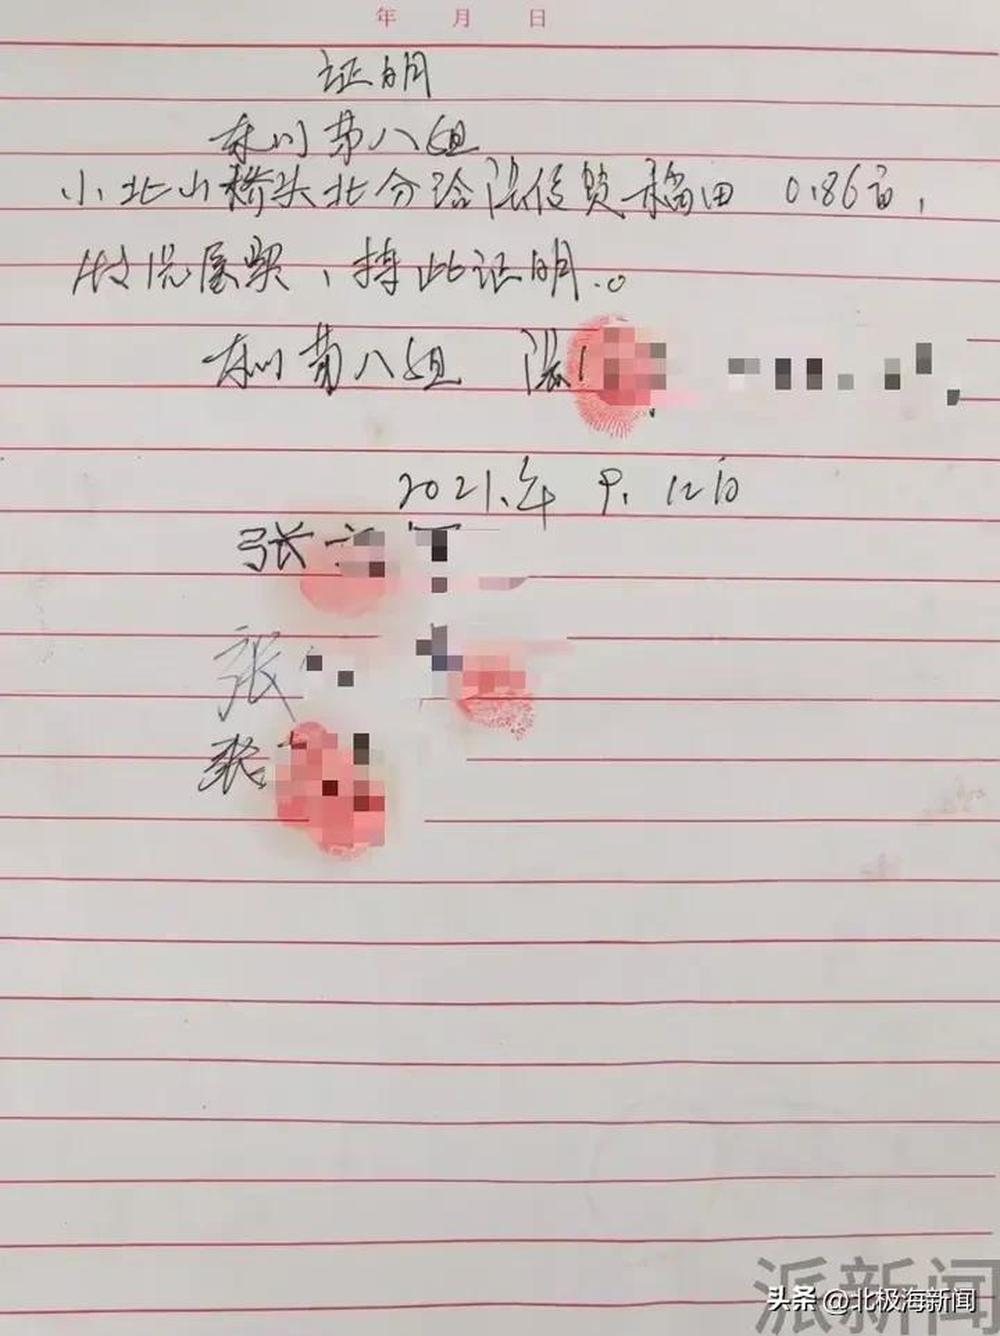 年 月 日
证明
东川第八组
小北山桥头北分给张传贤稻田 0.86亩,
情况属实、特此证明。
东川第八组 张
2021.年 9. 12日
张
张
张
派新闻
头条 @北极海新闻